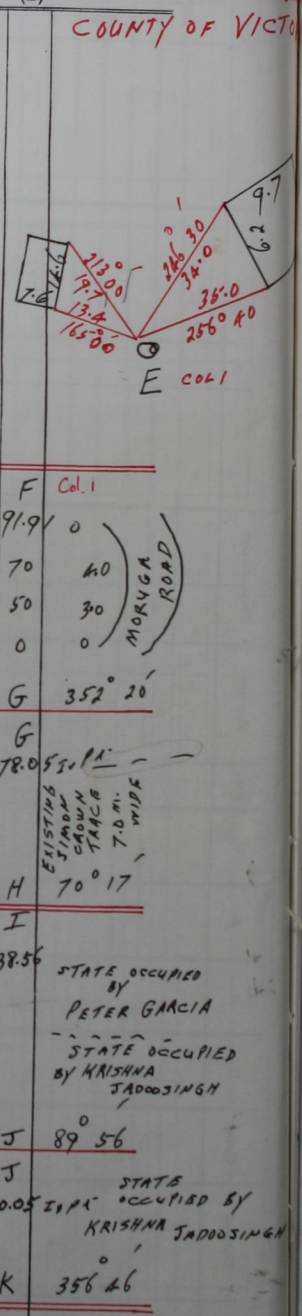 COUNTY OF VICTO
213° 00'
19.7
13.4
165° 00'
7.6
246° 30'
34.0
35.0
256° 40'
9.7
6.2
E COL 1
F Col. 1
91.91 0
70 4.0
50 3.0
0 0
MORUGA
ROAD
G 352° 20'
G
78.05 I.Pk.
EXISTING
SIMON
CROWN
TRACE
7.0 m.
WIDE
H 70° 17'
I
38.56
STATE OCCUPIED
BY
PETER GARCIA
STATE OCCUPIED
BY KRISHNA
JADOOSINGH
J 89° 56'
J
0.05 I.Pk
STATE
OCCUPIED BY
KRISHNA JADOOSINGH
K 356° 46'